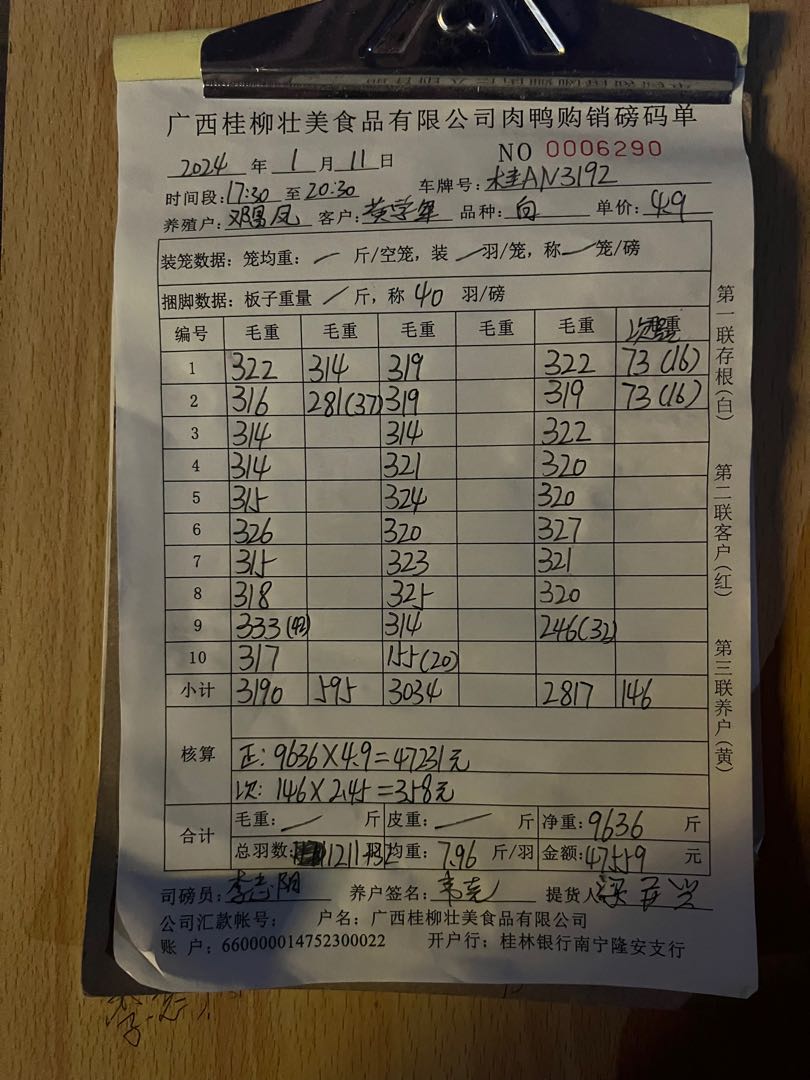 广西桂柳壮美食品有限公司肉鸭购销磅码单
NO 0006290
2024 年 1 月 11 日
时间段:17:30 至 20:30 车牌号:桂AN3192
养殖户:邓昌凤 客户:黄学军 品种:白 单价:4.9
装笼数据:笼均重: 一 斤/空笼,装 一 羽/笼,称 一 笼/磅
捆脚数据:板子重量 / 斤,称 40 羽/磅
编号 毛重 毛重 毛重 毛重 毛重
1 322 314 319 322 73(16)
2 316 281(37) 319 319 73(16)
3 314 314 322
4 314 321 320
5 315 324 320
6 326 320 327
7 315 323 321
8 318 325 320
9 333(42) 314 246(32)
10 317 155(20)
小计 3190 595 3034 2817 146
核算
正: 9636×4.9=47231元
次: 146×2.45=358元
合计
毛重: 一 斤 皮重: 一 斤 净重:9636 斤
总羽数: 1211+32 均重: 7.96 斤/羽 金额:47559 元
司磅员: 李志阳 养户签名: 韦克 提货人
公司汇款帐号: 户名:广西桂柳壮美食品有限公司
账 户:660000014752300022 开户行:桂林银行南宁隆安支行
第一联存根(白) 第二联客户(红) 第三联养户(黄)